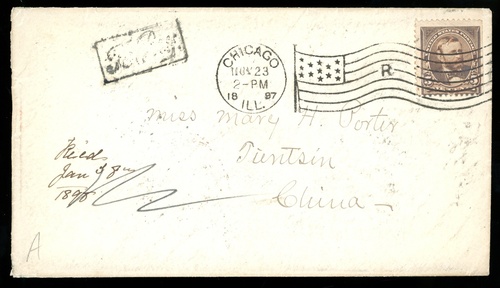 CHICAGO
NOV 23
2-PM
18 97
ILL.
R
Miss Mary H. Porter
Tientsin
China
Recd
Jan
1898
A